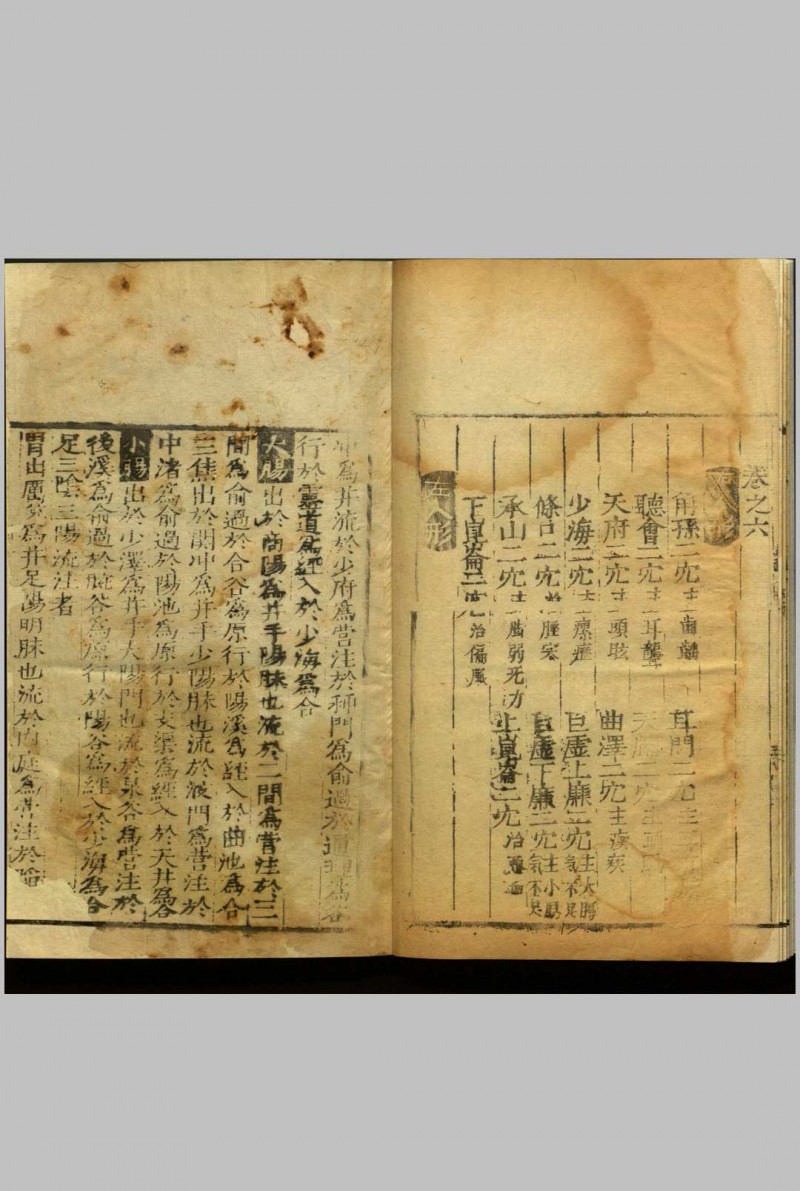 卷之六
形
角孫二穴主齒齲 耳門二穴主
聽會二穴主耳聾 二穴主
天府二穴主頭眩 曲澤二穴主痰疾
少海二穴主瘰癧 巨虛上廉二穴主大腸氣不足
條口二穴治脛寒 巨虛下廉二穴主小腸氣不足
承山二穴主脚弱无力 上崑崙二穴治
下崑崙二穴治偏風
人形
冲為井流於少府為營注於神門為俞過於通理為
行於靈道為經入於少海為合
太陽出於商陽為井手陽脉也流於二間為營注於三
間為俞過於合谷為原行於陽溪為經入於曲池為合
三焦出於関冲為井手少陽脉也流於液門為营注於
中渚為俞過於陽池為原行於支渠為經入於天井為合
小腸出於少澤為井手太陽門也流於泉谷為营注於
後溪為俞過於腕谷為原行於陽谷為經入於少海為合
足三陰三陽流注者
胃出厲兌為井足陽明脉也流於内庭為营注於陷